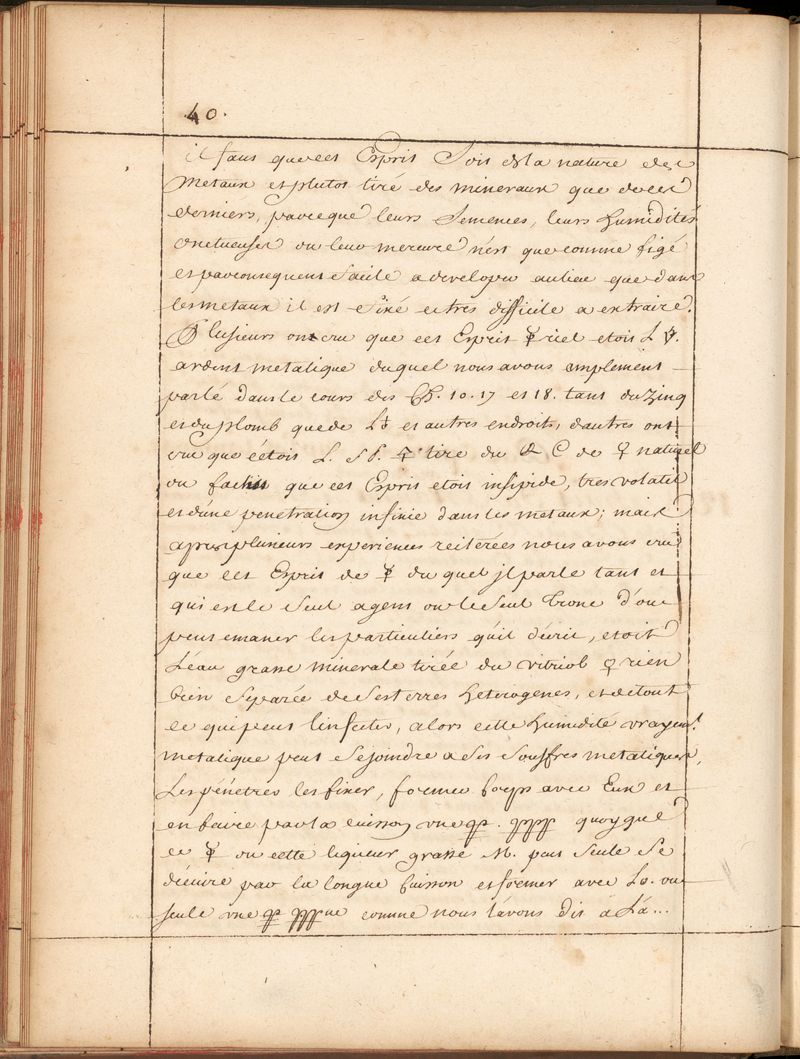 40.
il faut que cet Esprit Soit de la nature des
Metaux et plutot tiré des mineraux que de ces
derniers, parceque leurs Semences, leurs humidités
onctueuses ou leur mercure n'est que comme figé
et par consequent facile a developer au lieu que dans
les metaux il est fixé et tres difficile a extraire.
Plusieurs ont cru que cet Esprit ☿riel etoit L
ardent metalique duquel nous avons amplement
parlé dans le cours des Ch. 10. 17 et 18. tant du Zinq
et du plomb que de et autres endroits, d'autres ont
cru que c'étoit L. tiré du de ♀ naturel
ou que cet Esprit etoit insipide, tres volatil
et d'une penetration infinie dans les metaux; mais
apres plusieurs experiences reiterées nous avons cru
que cet Esprit de ☿ du quel jl parle tant et
qui est le Seul agent ou le Seul tronc d'ou
peut emaner les particuliers qu'il décrit, etoit
L'éau grasse minerale tirée du vitriol ♀rien
bien Separée de Ses terres héterogenes, et de tout
ce qui peut l'infecter, alors cette humidité vrayent.
metalique peut Se joindre a Ses Souffres metaliques,
Les pénétrer les fixer, former Corps avec Eux et
en faire par la cuisson vne quoyque
ce ☿ ou cette liqueur grasse M. peut Seule Se
décuire par la longue Cuisson et former avec Lo. ou
seule vne comme nous l'avons dit á La...